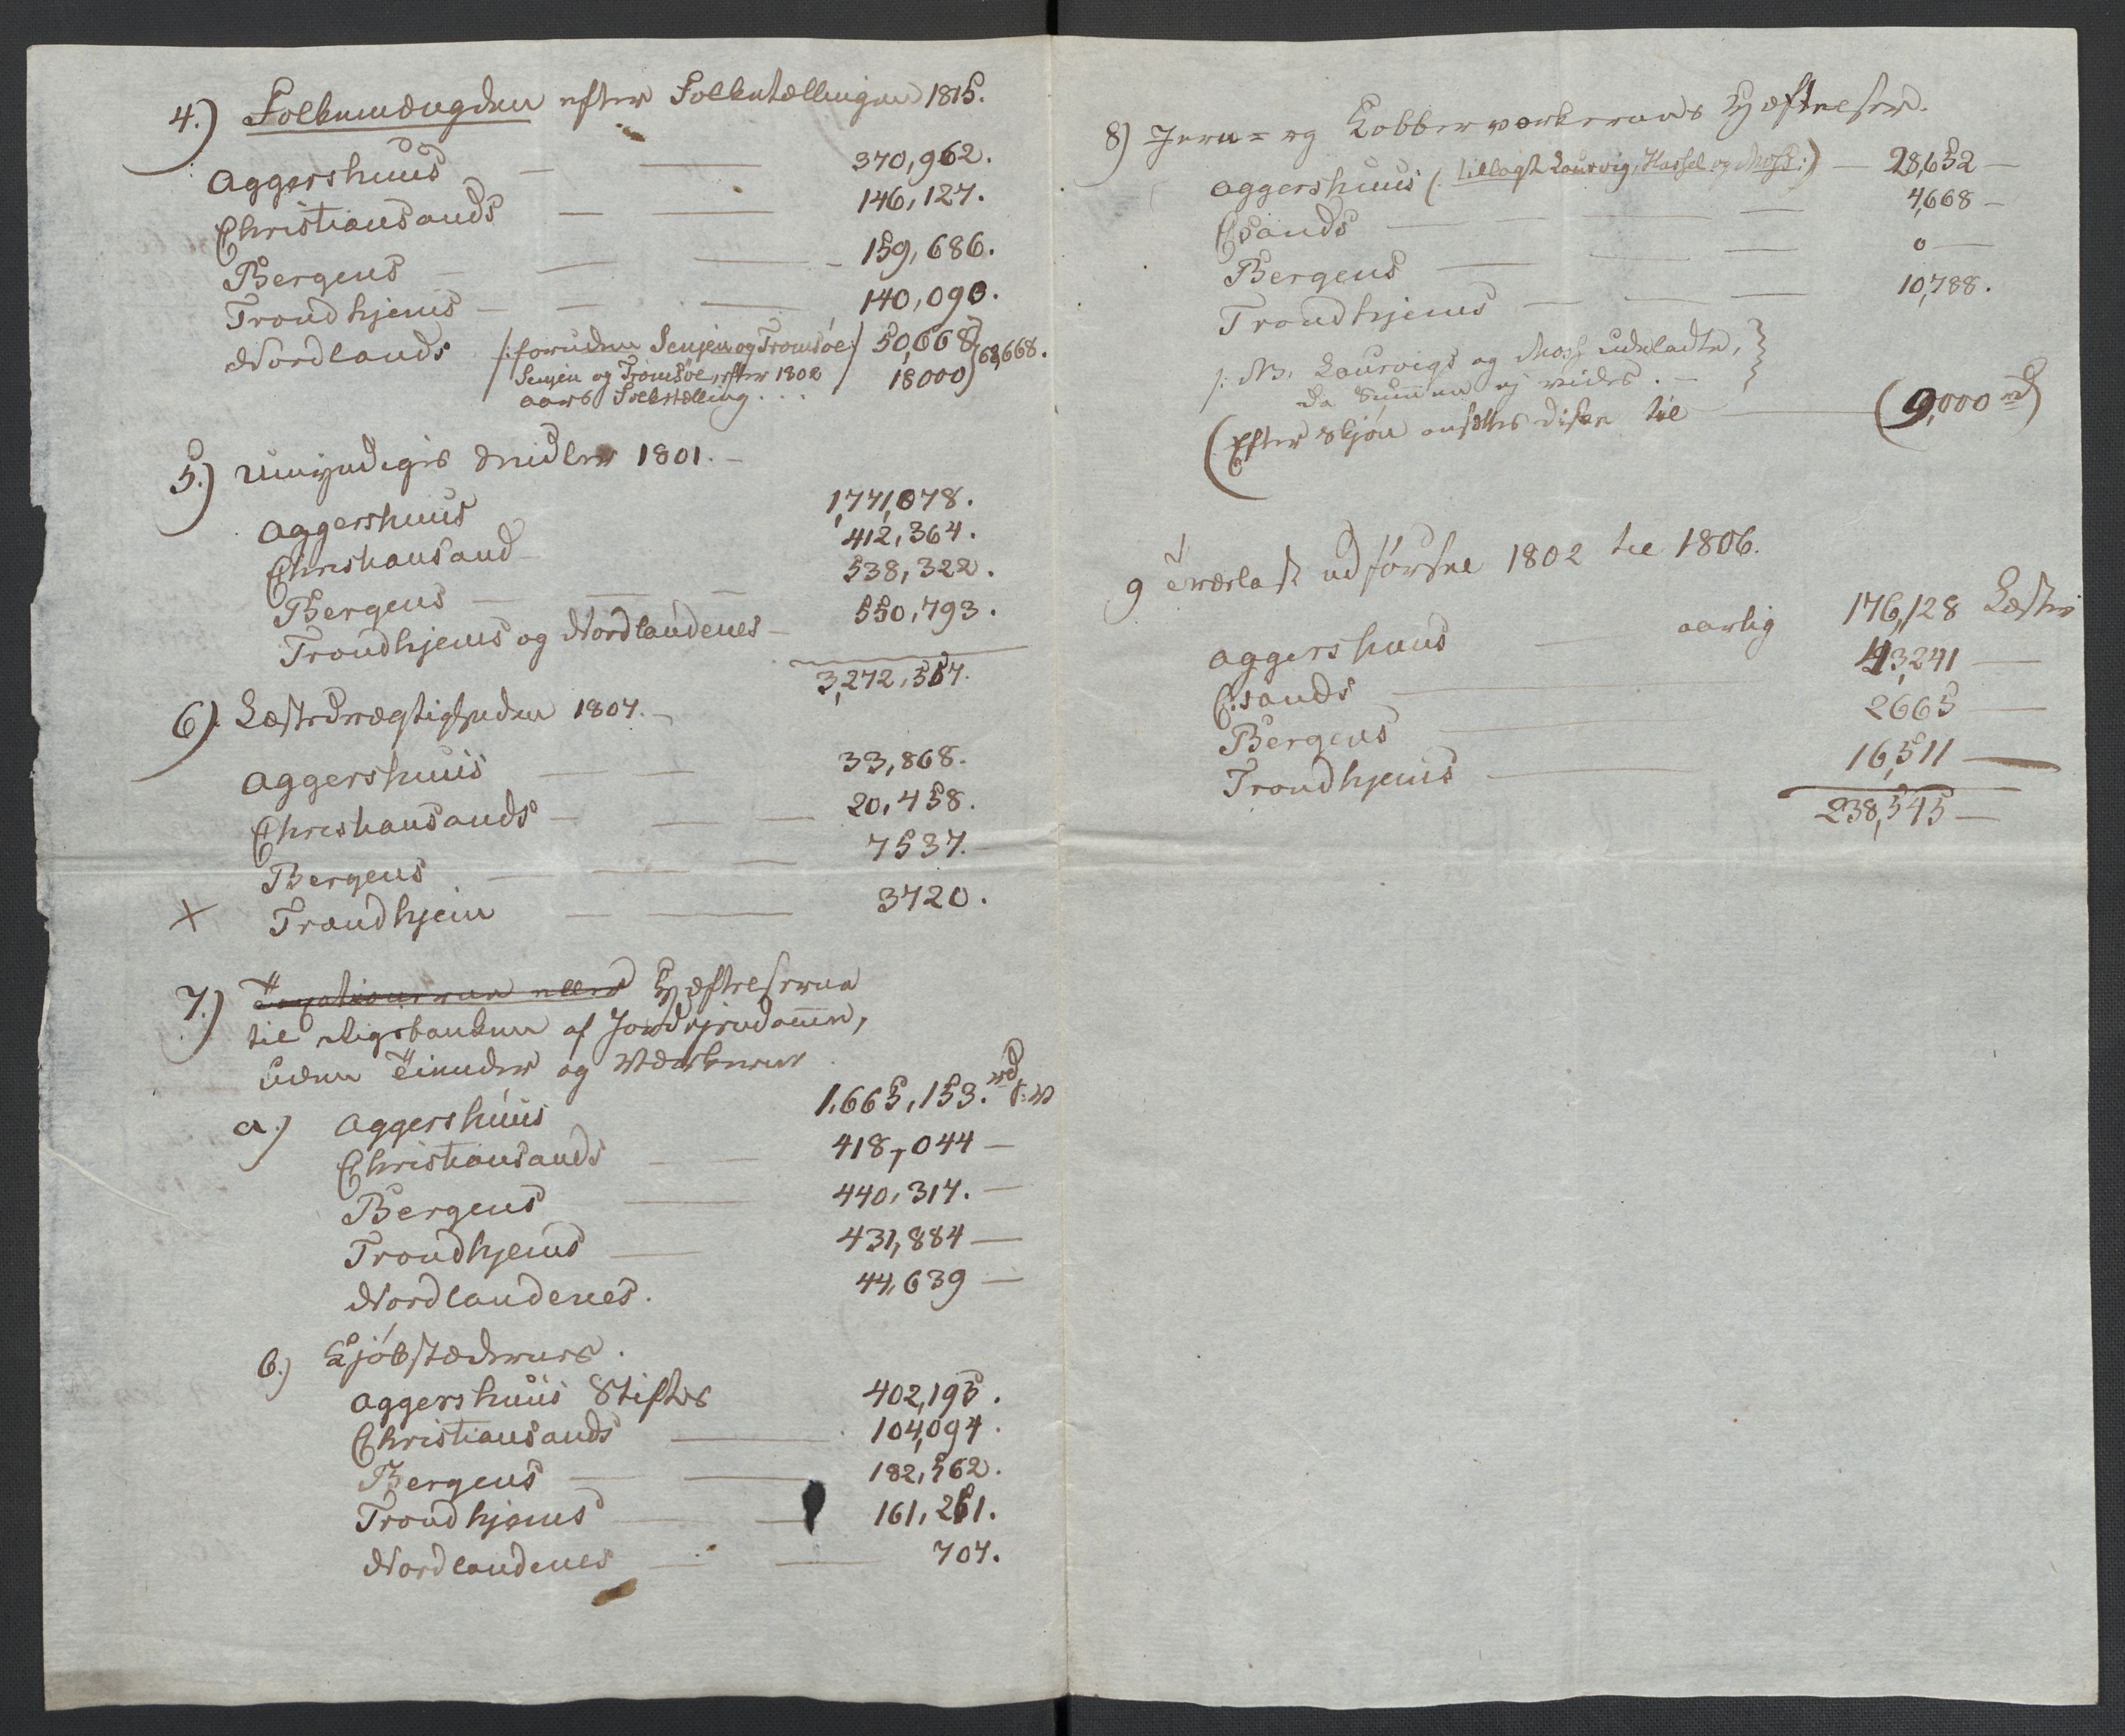 4.) Folkemængden efter Folketællingen 1815.
Aggershuus — — 370,962.
Christiansands — — 146,127.
Bergens — — — 159,686.
Trondhjems — — — 140,090.
Nordlands /: foruden Senjen og Tromsöe :/ 50,668 } 68,668.
Senjen og Tromsöe, efter 1802 / 18000
aars Folketælling . . .
5.) Umyndiges Midler 1801. —
Aggershuus 1,771,078.
Christiansand — 412,364.
Bergens — — — 538,322.
Trondhjems og Nordlandenes — 550,793.
3,272,557.
6). Læstedrægtigheden 1807. —
Aggershuus — — 33,868.
Christiansands — — — 20,458.
Bergens — — — 7537.
× Trondhjem — — 3720.
7.) Taxationerne eller Hæftelserne
til Rigsbanken af Jordejendomme,
uden Tiender og Værkerne
a.) Aggershuus 1,665,153. rd S.V
Christiansands — — 418,044 —
Bergens — 440,317. —
Trondhjems — 431,884 —
Nordlandenes. 44,639 —
b.) Kjöbstædernes.
Aggershuus Stifts 402,195.
Christiansands — 104,094.
Bergens — — 182,562.
Trondhjems — — 161,261.
Nordlandenes — — 707.
8) Jern- og Kobberværkernes Hæftelser.
Aggershuus (: tillagt Laurvig, Hassel og Moss :) — 28,652 —
C:sands — — — — 4,668 —
Bergens — — — 0 —
Trondhjems — — — 10,788.
/: NB. Laurvigs og Moss udeladte,
da Summen ej vides. —
(Efter Skjön ansættes disse til — (9,000 rd)
9 Trælast udförsel 1802 til 1806.
Aggershuus — aarlig 176,128 Læster
C:sands — 43,241 —
Bergens — 2665 —
Trondhjems — 16,511 —
238,545 —